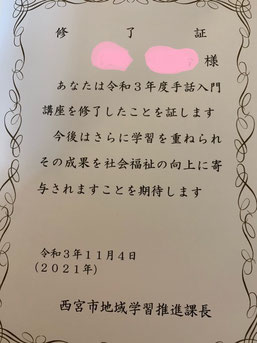 修了証
様
あなたは令和３年度手話入門
講座を修了したことを証します
今後はさらに学習を重ねられ
その成果を社会福祉の向上に寄
与されますことを期待します
令和３年１１月４日
（２０２１年）
西宮市地域学習推進課長